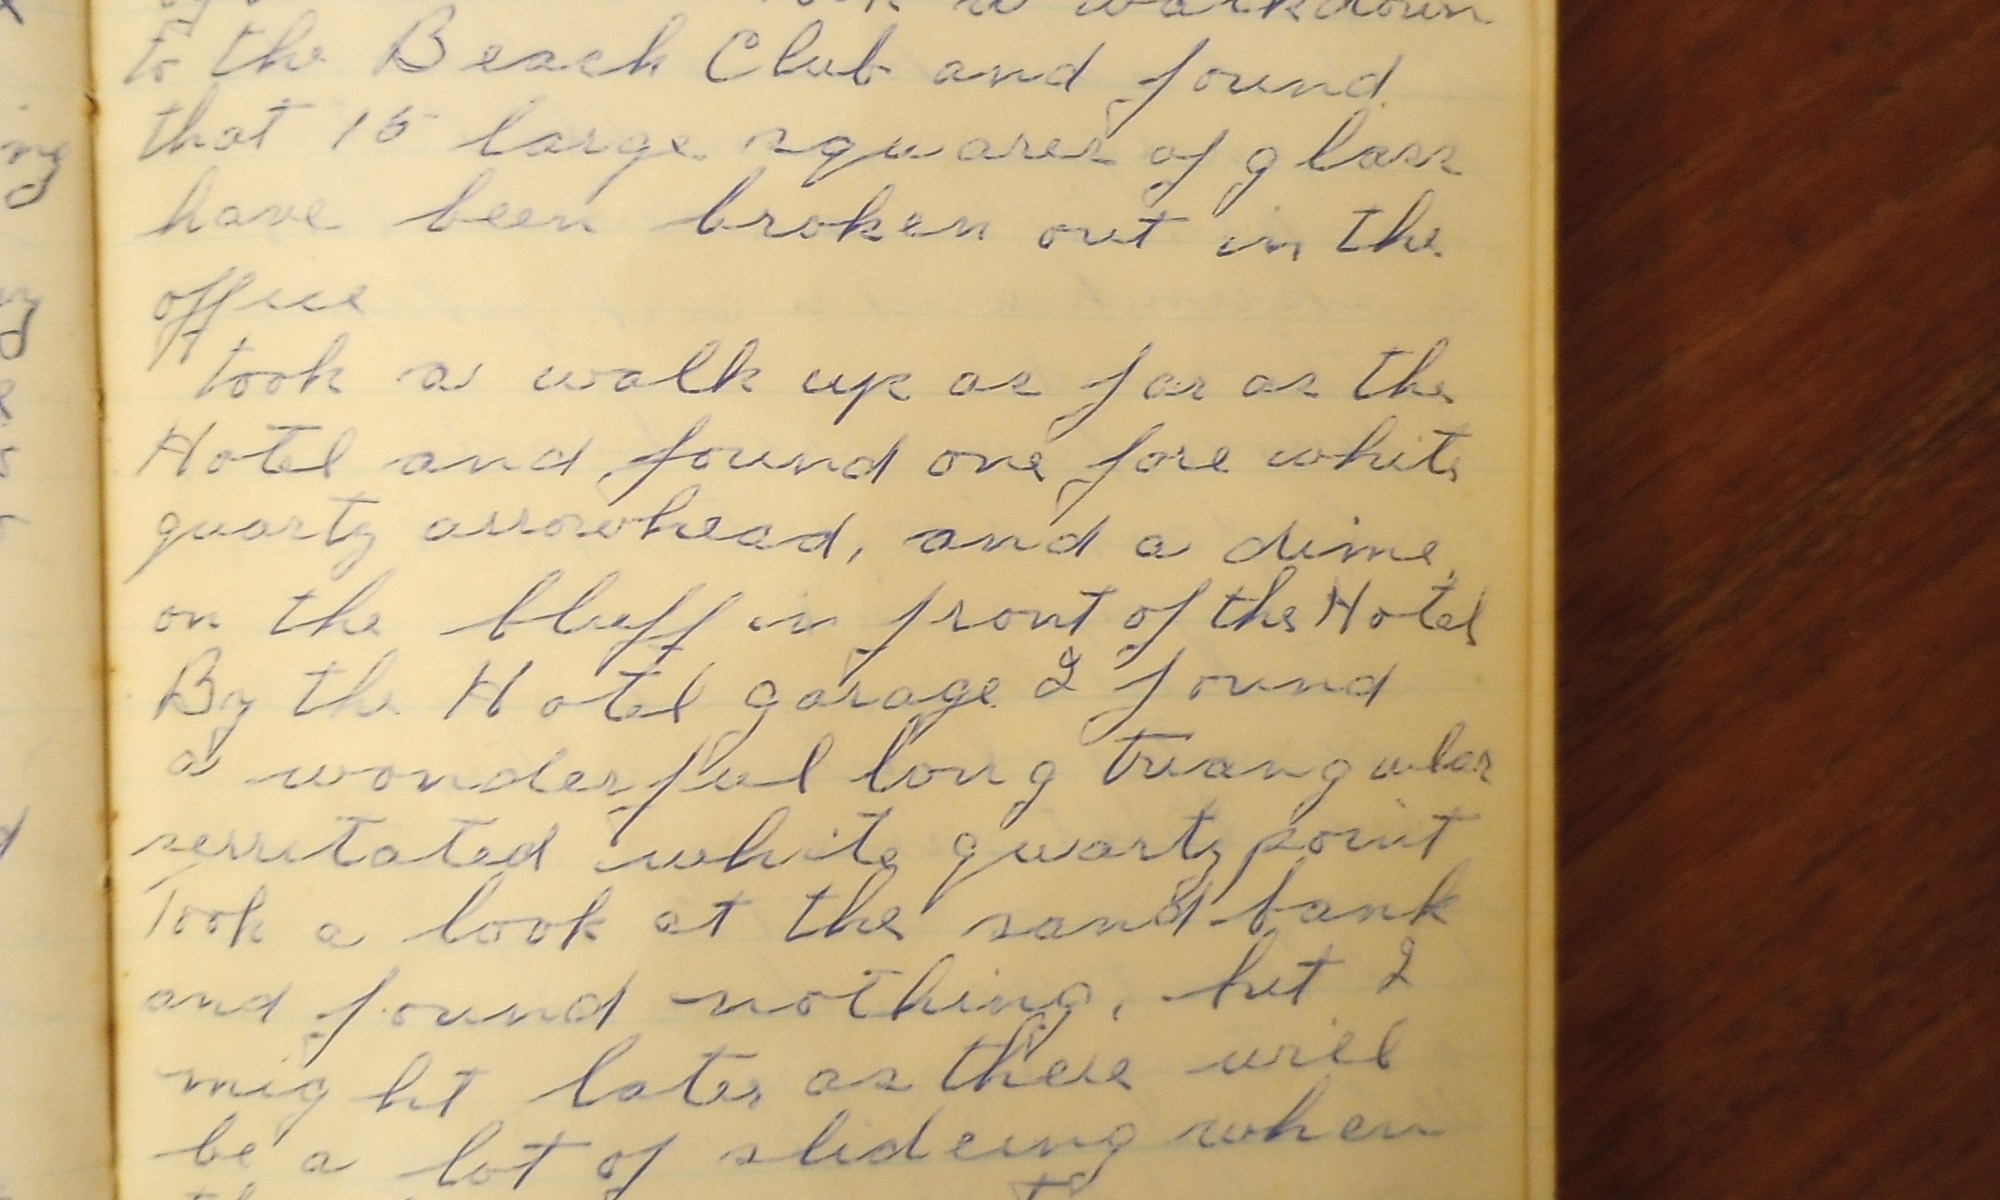 walkdown
to the Beach Club and found
that 15 large squares of glass
have been broken out in the
office
took a walk up as far as the
Hotel and found one fore white
quartz arrowhead, and a dime,
on the bluff in front of the Hotel
By the Hotel garage I found
a wonderful long triangular
serritated white quartz point
Took a look at the sand bank
and found nothing, but I
might later as there will
be a lot of slideing when